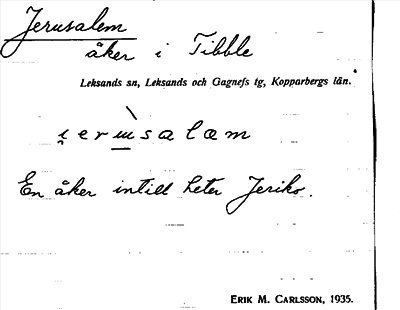 Jerusalem
åker i Tibble
Leksands sn, Leksands och Gagnefs tg, Kopparbergs län.
En åker intill heter Jeriko.
ERIK M. CARLSSON, 1935.